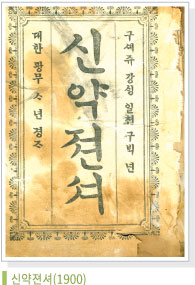 구셰쥬 강싱 일쳔 구빅 년
신약젼셔
대한 광무 ᄉ 년 경ᄌ
신약젼셔(1900)